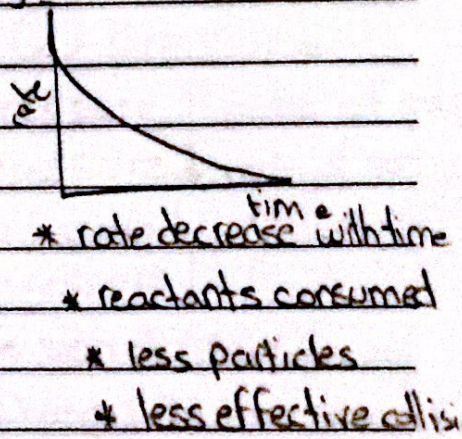 rate
time
* rate decrease with time
* reactants consumed
* less particles
* less effective